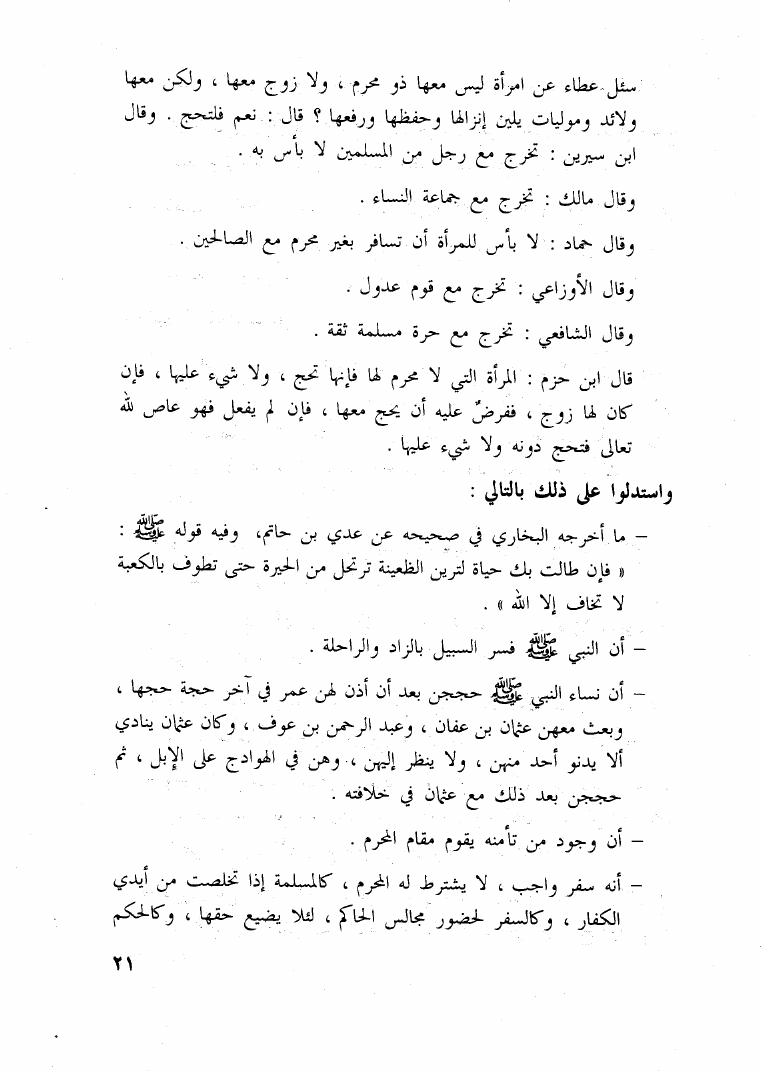 سئل عطاء عن امرأة ليس معها ذو محرم ، ولا زوج معها ، ولكن معها
ولائد وموليات يلين إنزالها وحفظها ورفعها ؟ قال : نعم فلتحج . وقال
ابن سيرين : تخرج مع رجل من المسلمين لا بأس به .
وقال مالك : تخرج مع جماعة النساء .
وقال حماد : لا بأس للمرأة أن تسافر بغير محرم مع الصالحين .
وقال الأوزاعي : تخرج مع قوم عدول .
وقال الشافعي : تخرج مع حرة مسلمة ثقة .
قال ابن حزم : المرأة التي لا محرم لها فإنها تحج ، ولا شيء عليها ، فإن
كان لها زوج ، ففرضٌ عليه أن يحج معها ، فإن لم يفعل فهو عاص لله
تعالى فتحج دونه ولا شيء عليها .
واستدلوا على ذلك بالتالي :
– ما أخرجه البخاري في صحيحه عن عدي بن حاتم، وفيه قوله ﷺ :
« فإن طالت بك حياة لترين الظعينة ترتحل من الحيرة حتى تطوف بالكعبة
لا تخاف إلا الله » .
– أن النبي ﷺ فسر السبيل بالزاد والراحلة .
– أن نساء النبي ﷺ حججن بعد أن أذن لهن عمر في آخر حجة حجها ،
وبعث معهن عثمان بن عفان ، وعبد الرحمن بن عوف ، وكان عثمان ينادي
ألا يدنو أحد منهن ، ولا ينظر إليهن ، وهن في الهوادج على الإبل ، ثم
حججن بعد ذلك مع عثمان في خلافته .
– أن وجود من تأمنه يقوم مقام المحرم .
– أنه سفر واجب ، لا يشترط له المحرم ، كالمسلمة إذا تخلصت من أيدي
الكفار ، وكالسفر لحضور مجالس الحاكم ، لئلا يضيع حقها ، وكالحكم
٢١